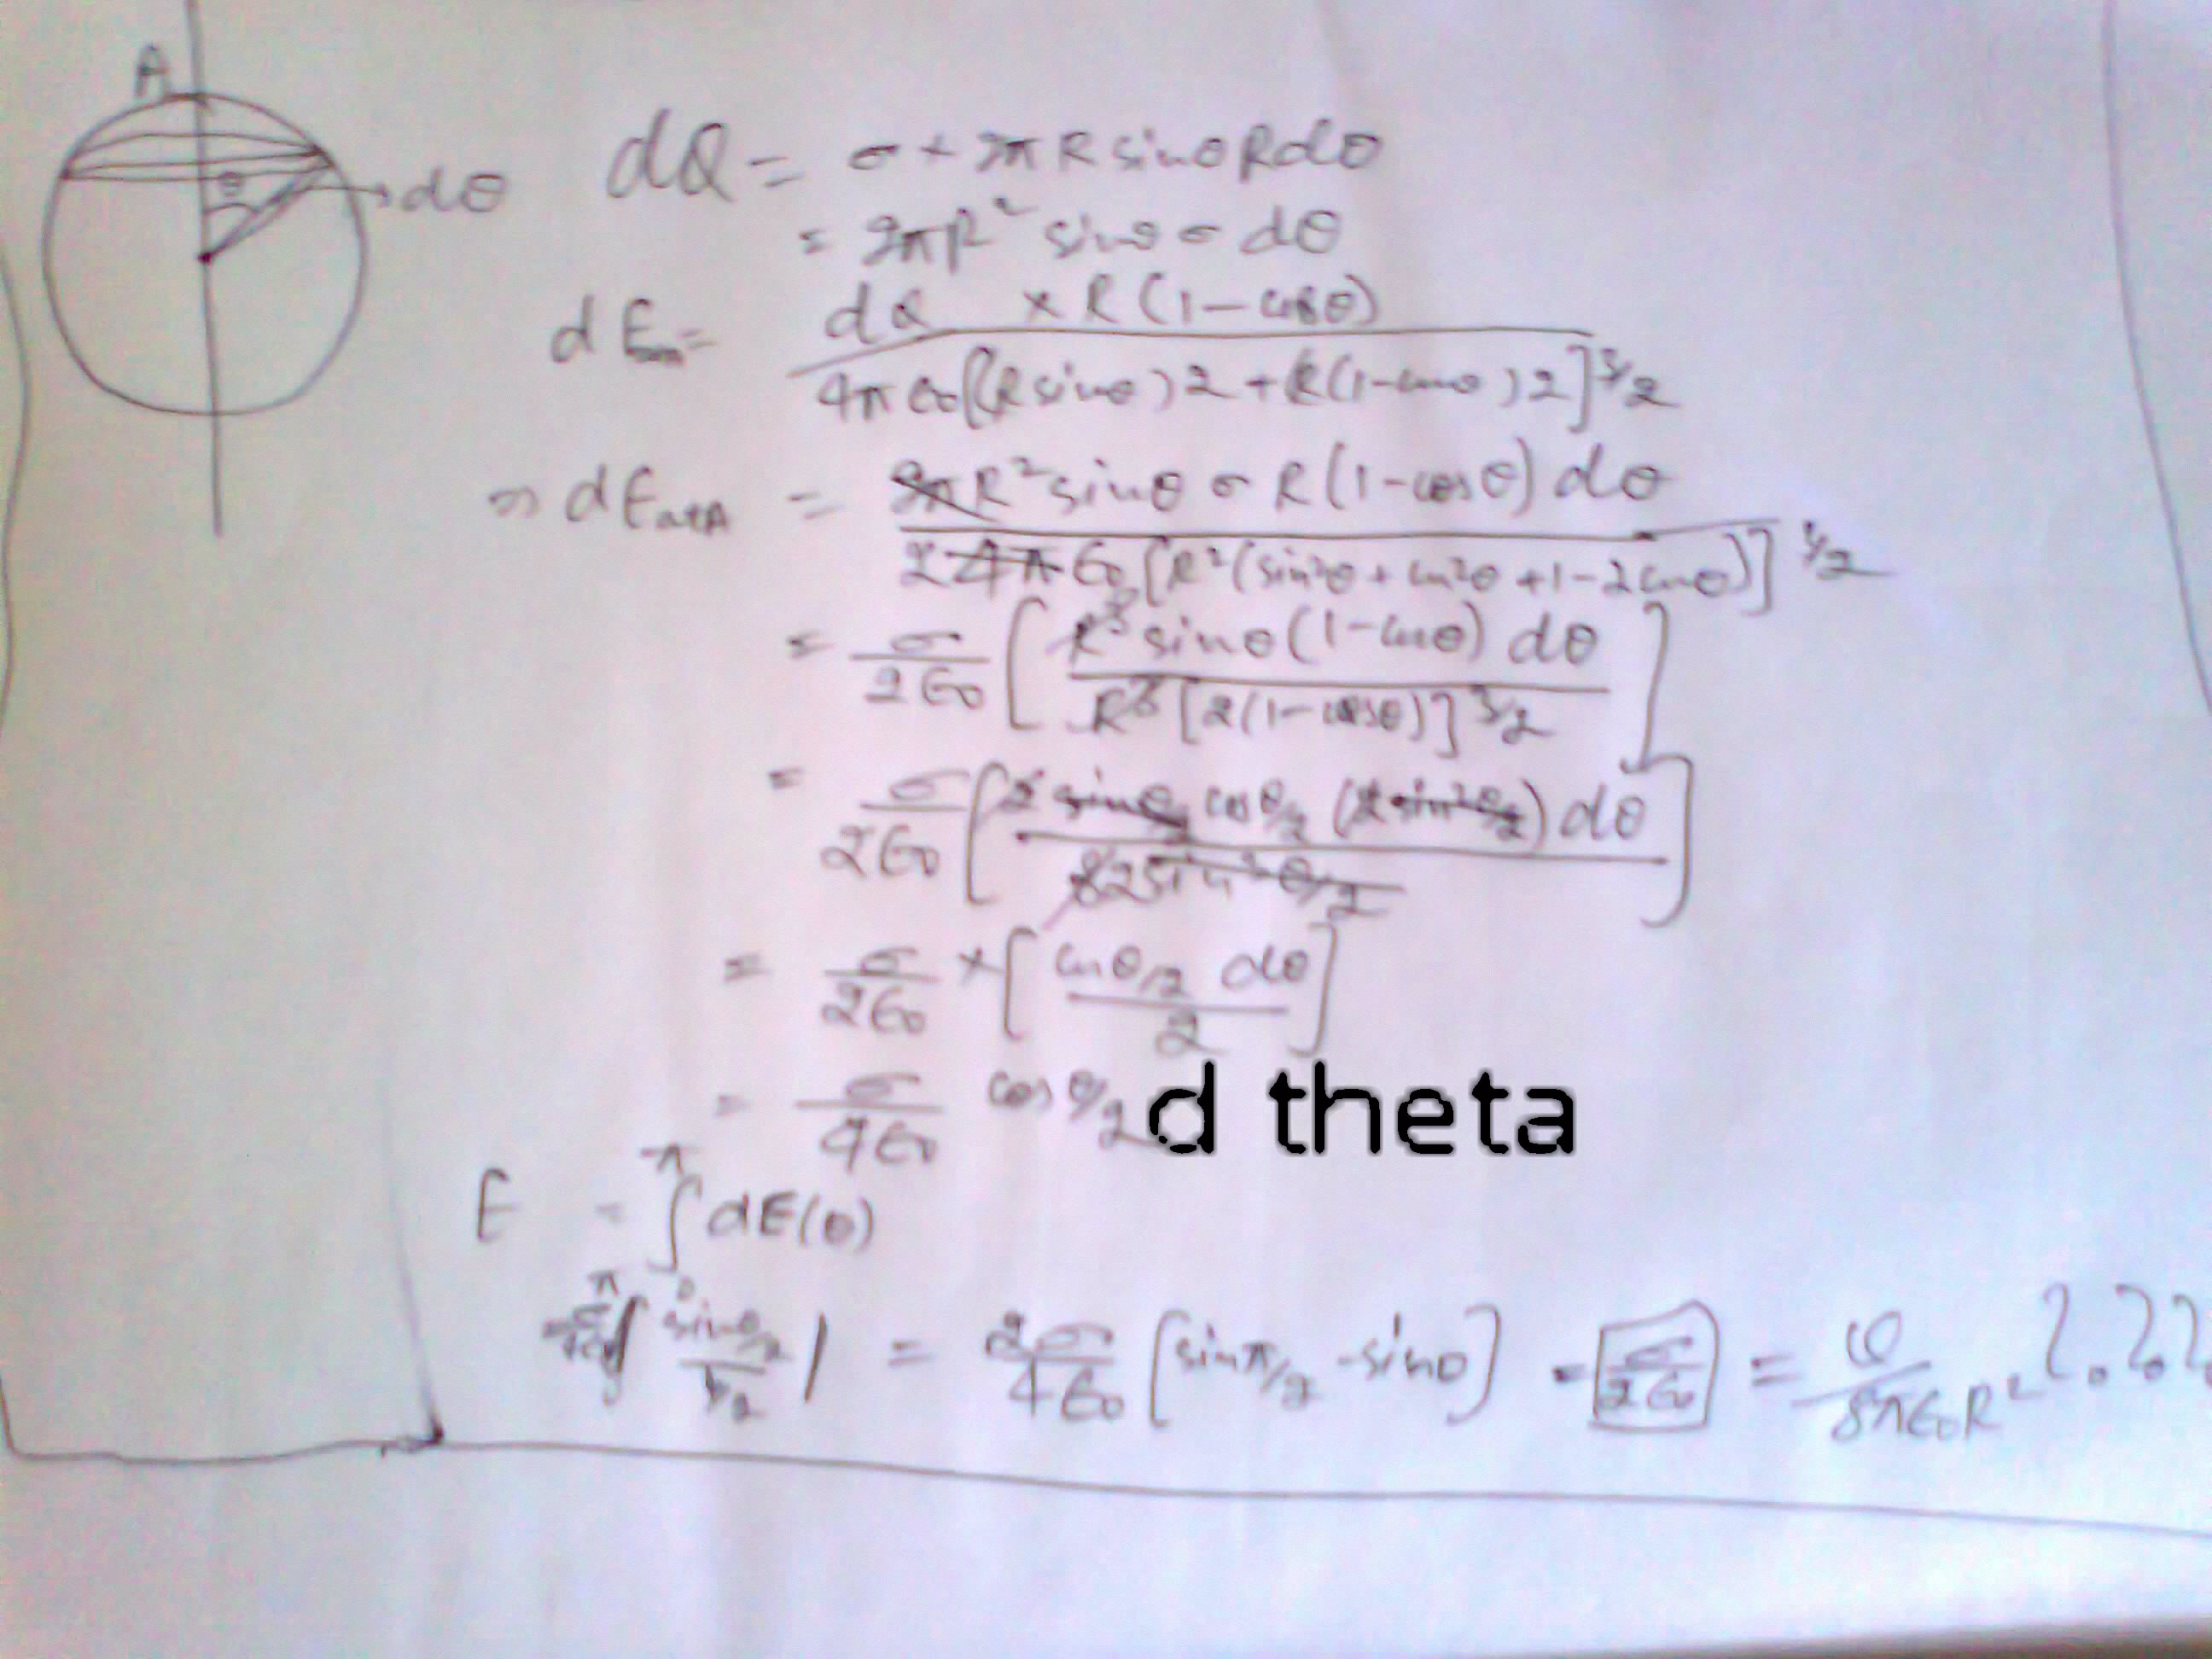 A
θ
dθ
dQ = σ × 2π R sinθ R dθ
= 2πR² sinθ σ dθ
dE = dQ × R(1-cosθ) / 4π ε₀[(R sinθ)2 + R(1-cosθ)2]^3/2
⇒ dE at A = 2πR² sinθ σ R(1-cosθ) dθ / 2 4π ε₀ [R²(sin²θ + cos²θ + 1 - 2cosθ)]^3/2
= σ/2ε₀ [R³ sinθ(1-cosθ) dθ / R³ [2(1-cosθ)]^3/2]
= σ/2ε₀ [2 sinθ/2 cosθ/2 (2 sin²θ/2) dθ / 8 2 sin³θ/2]
= σ/2ε₀ × [cosθ/2 dθ / 2]
= σ/4ε₀ cosθ/2 d theta
E = ∫₀^π dE(θ)
π | sinθ/2 / 1/2 | = 2σ/4ε₀ [sinπ/2 - sin0] = σ/2ε₀ = Q/8πε₀R² ? ? ?